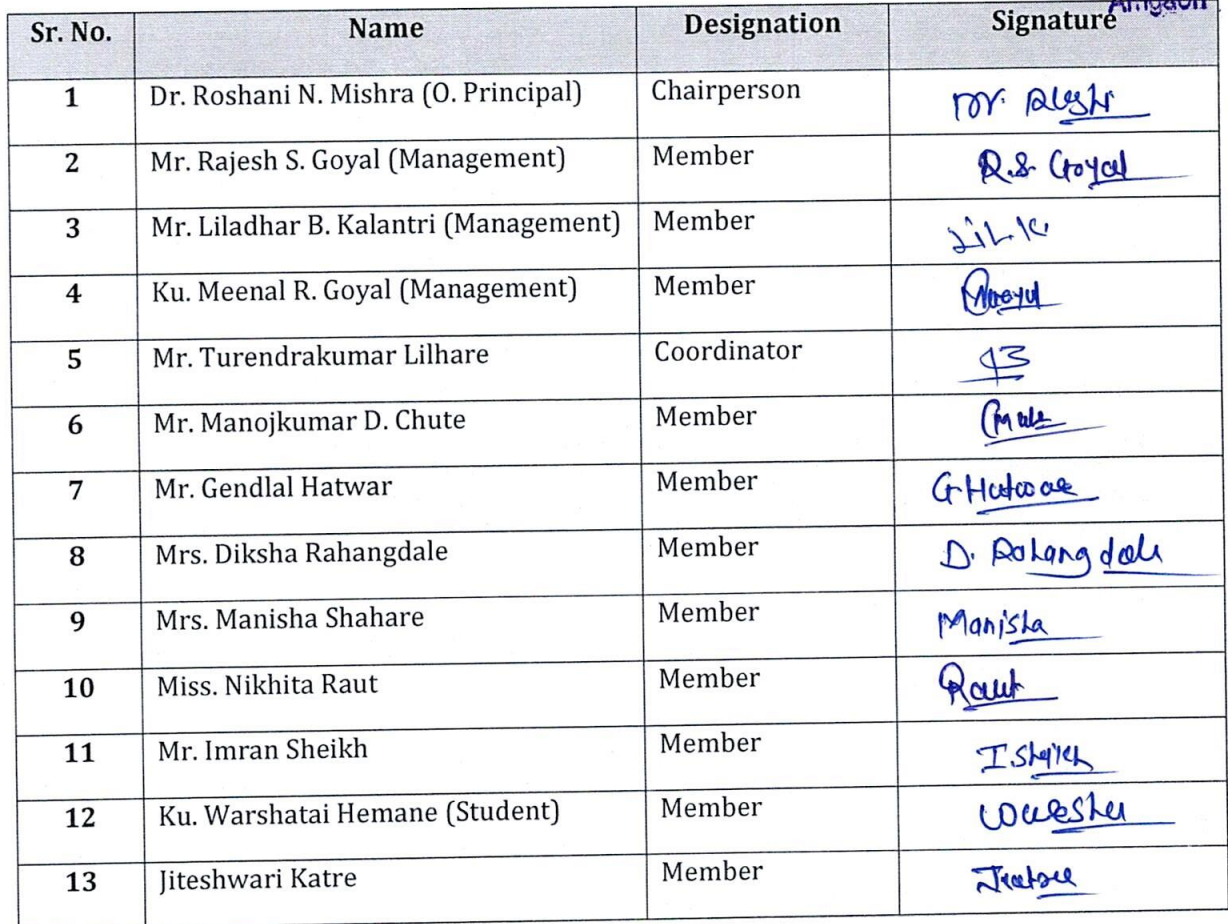 Amgaon
Sr. No. Name Designation Signature
1 Dr. Roshani N. Mishra (O. Principal) Chairperson
2 Mr. Rajesh S. Goyal (Management) Member R.S. Goyal
3 Mr. Liladhar B. Kalantri (Management) Member
4 Ku. Meenal R. Goyal (Management) Member
5 Mr. Turendrakumar Lilhare Coordinator
6 Mr. Manojkumar D. Chute Member
7 Mr. Gendlal Hatwar Member
8 Mrs. Diksha Rahangdale Member D. Rahangdale
9 Mrs. Manisha Shahare Member Manisha
10 Miss. Nikhita Raut Member Raut
11 Mr. Imran Sheikh Member I. Sheikh
12 Ku. Warshatai Hemane (Student) Member
13 Jiteshwari Katre Member